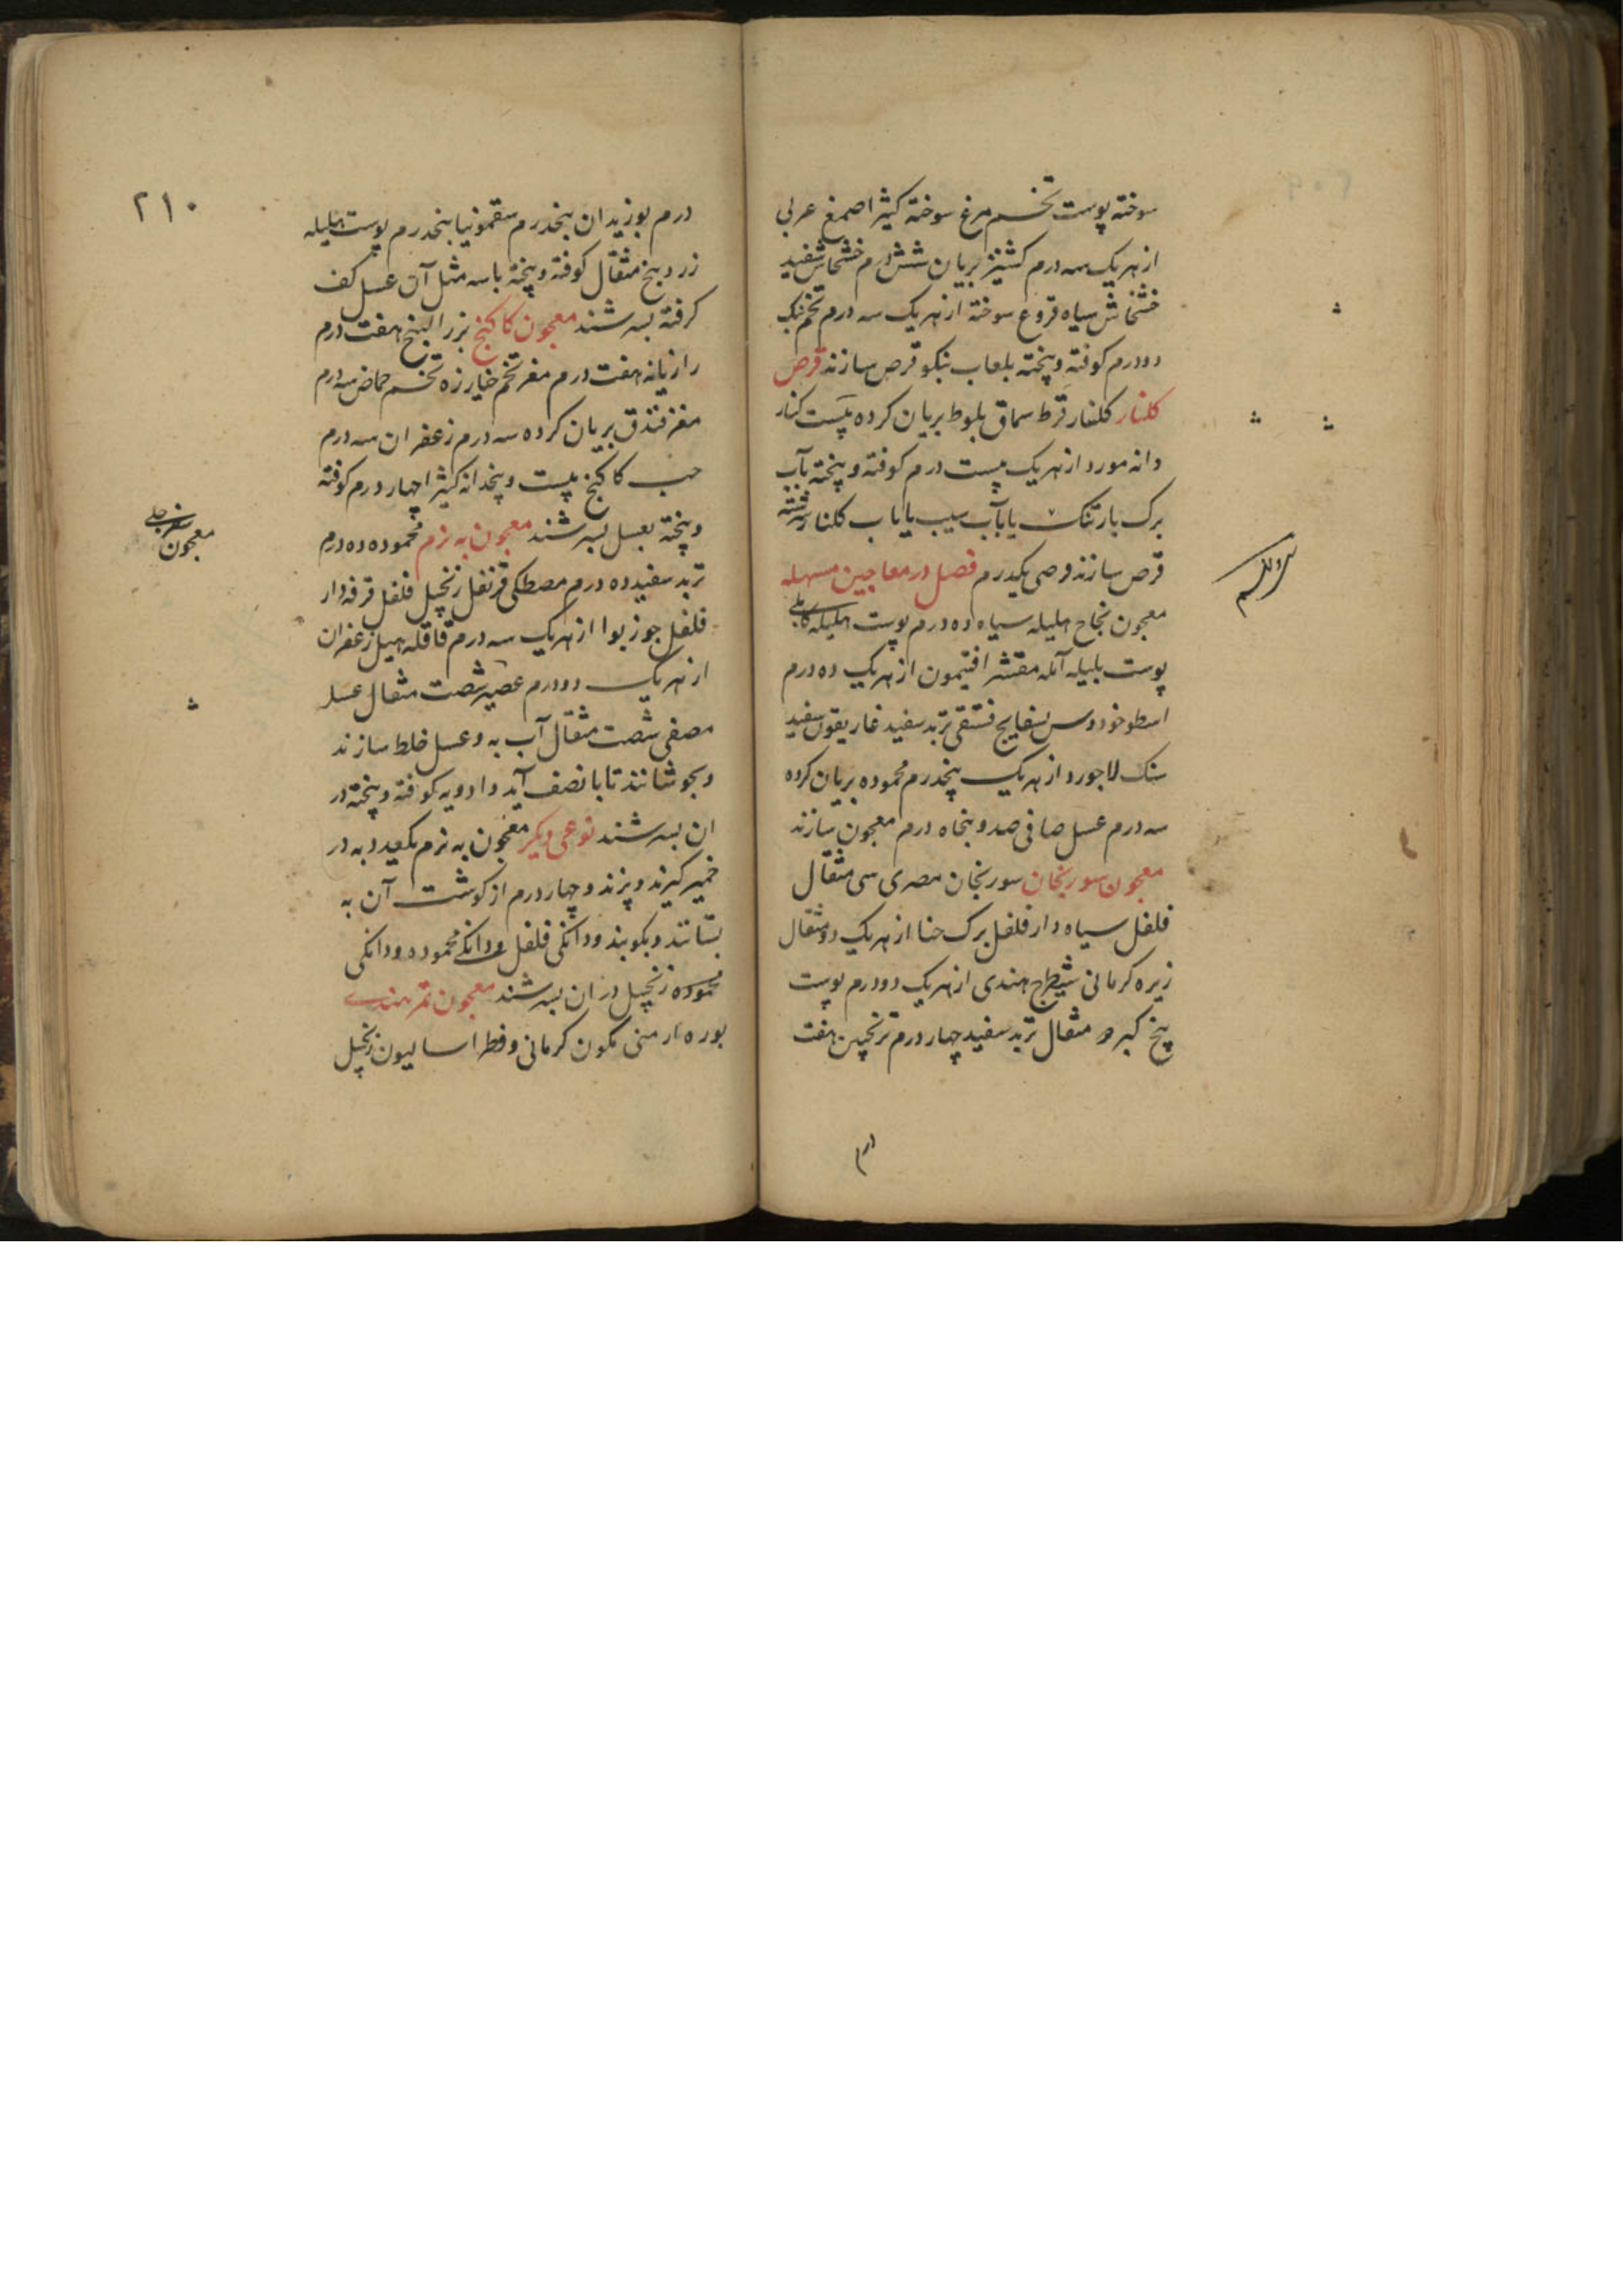 سوخته پوست تخم مرغ سوخته کثیرا صمغ عربی
از هریک سه درم کشنیز بریان شش درم خشخاش سفید
خشخاش سیاه قروع سوخته از هریک سه درم تخم بنک
دودرم کوفته و پخته بلعاب بنکو قرص سازند قرص
کلنار کلنار قرط سماق بلوط بریان کرده پست کنار
دانه مورد از هریک بیست درم کوفته و پخته بآب
برک بارتنک یا بآب سیب یا باب کلنار سرشته
قرص سازند قرصی یکدرم فصل در معاجین مسهله
معجون نجاح هلیله سیاه ده درم پوست هلیله کابلی
پوست بلیله آمله مقشر افتیمون از هریک ده درم
اسطوخودوس بسفایج فستقی تربد سفید غاریقون سفید
سنک لاجورد از هریک پنجدرم محموده بریان کرده
سه درم عسل صافی صد و پنجاه درم معجون سازند
معجون سورنجان سورنجان مصری سی مثقال
فلفل سیاه دار فلفل برک حنا از هریک دو مثقال
زیره کرمانی شیطرج هندی از هریک دودرم پوست
بیخ کبر مثقال تربد سفید چهار درم ترنجبین هفت
درم
٢١٠
درم بوزیدان پنجدرم سقمونیا پنجدرم پوست هلیله
زرد پنج مثقال کوفته و پخته با سه مثل آن عسل کف
کرفته بسرشند معجون کاکنج بزرالبنج هفت درم
رازیانه هفت درم مغز تخم خیارزه تخم حماض سه درم
مغز فندق بریان کرده سه درم زعفران سه درم
حب کاکنج بیست و پنجدانه کثیرا چهار درم کوفته
و پخته بعسل بسرشند معجون به نرم محموده ده درم
تربد سفید ده درم مصطکی قرنفل زنجبیل فلفل قرفه دار
فلفل جوزبوا از هریک سه درم قاقله هیل زعفران
از هریک دودرم عصیر شصت مثقال عسل
مصفی شصت مثقال آب به و عسل خلط سازند
و بجوشانند تا بانصف آید و ادویه کوفته و پخته در
ان بسرشند نوعی دیکر معجون به نرم بکیرد به در
خمیر کیرند و پزند و چهار درم از کوشت آن به
بستانند و بکوبند و دانکی فلفل و دانکی محموده و دانکی
محموده زنجبیل در ان بسرشند معجون تمر هندی
بوره ارمنی کمون کرمانی و فطراسالیون زنجبیل
معجون سفرجلی